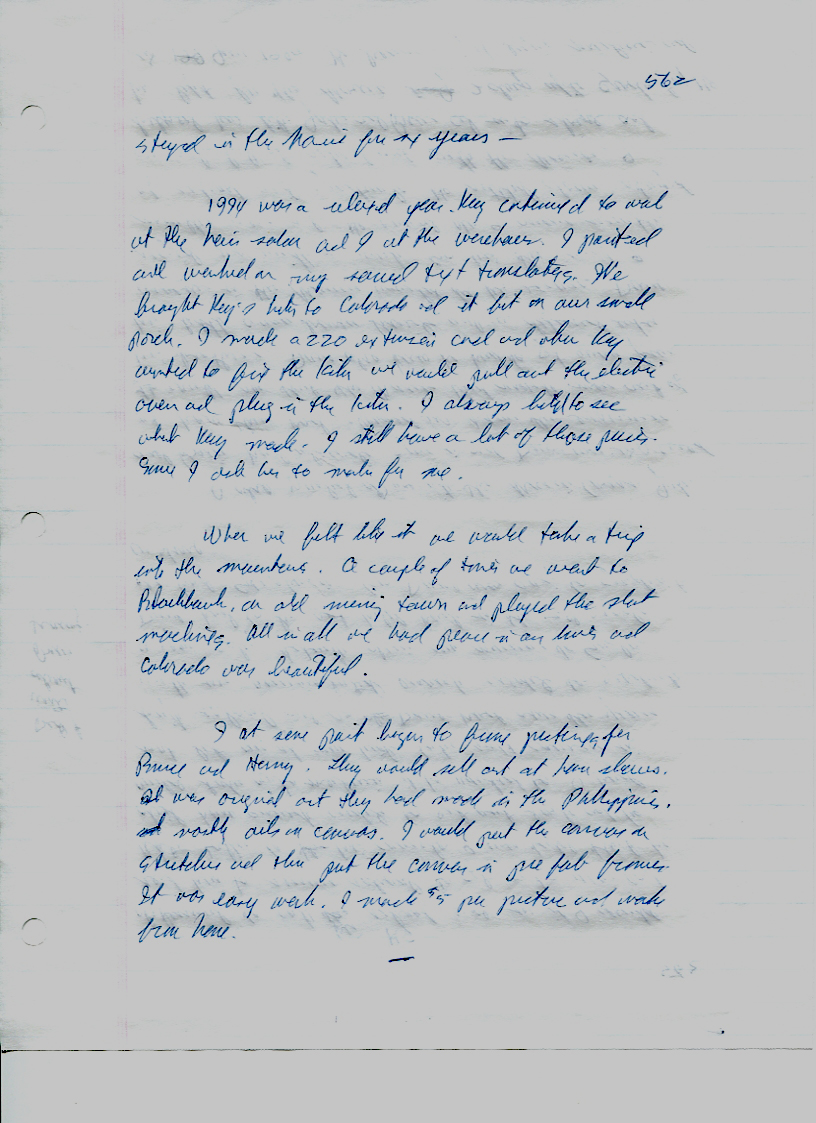 562
stayed in the house for six years —
1994 was a relaxed year. Kay continued to work
at the hair salon and I at the warehouse. I painted
and worked on my sacred text translations. We
brought Kay's kiln to Colorado and it but on our small
porch. I made a 220 extension cord and when Kay
wanted to fire the kiln we would pull out the electric
oven and plug in the kiln. I always liked to see
what Kay made. I still have a lot of those pieces.
Some I ask her to make for me.
When we felt like it we would take a trip
into the mountains. A couple of times we went to
Blackhawk, an old mining town and played the slot
machines. All in all we had peace in our lives and
Colorado was beautiful.
I at some point began to frame paintings for
Bruce and Henry. They would sell art at home shows.
It was original art they had made in the Philippines.
mostly oils on canvas. I would put the canvas on
stretches and then put the canvas in pre fab frames
It was easy work. I made $5 per picture and worked
from home.
—